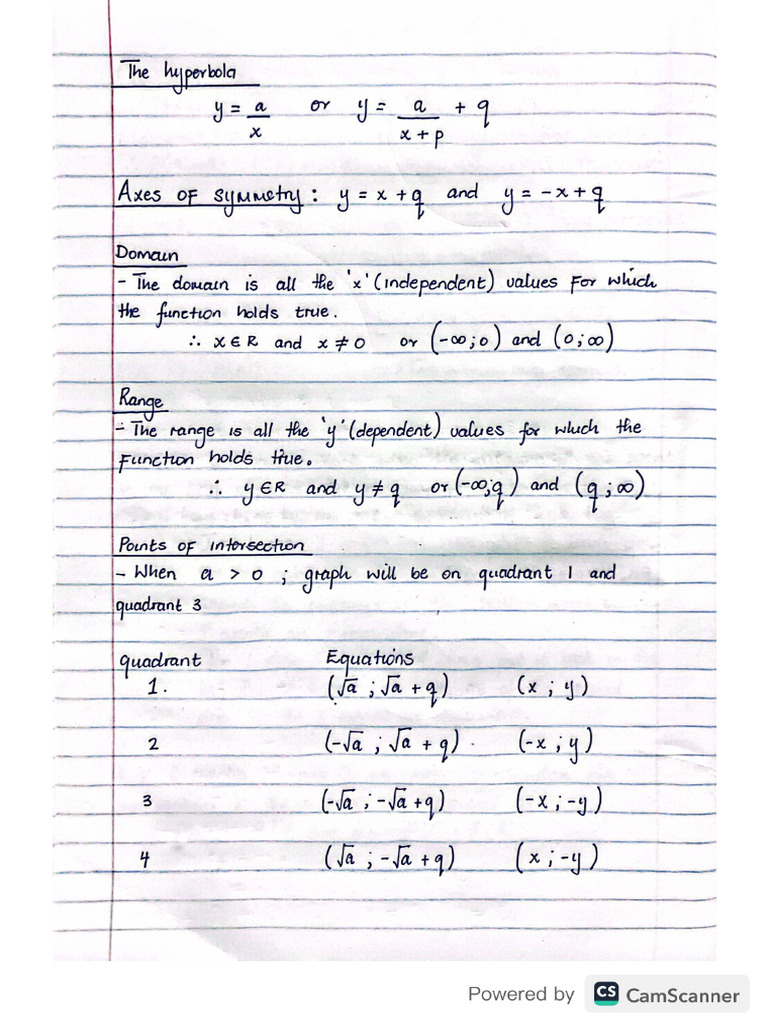 The hyperbola
y = a/x or y = a/(x + p) + q
Axes of symmetry : y = x + q and y = -x + q
Domain
- The domain is all the 'x' (independent) values for which
the function holds true.
∴ x ∈ R and x ≠ 0 or (-∞ ; 0) and (0 ; ∞)
Range
- The range is all the 'y' (dependent) values for which the
function holds true.
∴ y ∈ R and y ≠ q or (-∞ ; q) and (q ; ∞)
Points of intersection
- When a > 0 ; graph will be on quadrant 1 and
quadrant 3
quadrant Equations
1. (√a ; √a + q) (x ; y)
2 (-√a ; √a + q) . (-x ; y)
3 (-√a ; -√a + q) (-x ; -y)
4 (√a ; -√a + q) (x ; -y)
Powered by CS CamScanner